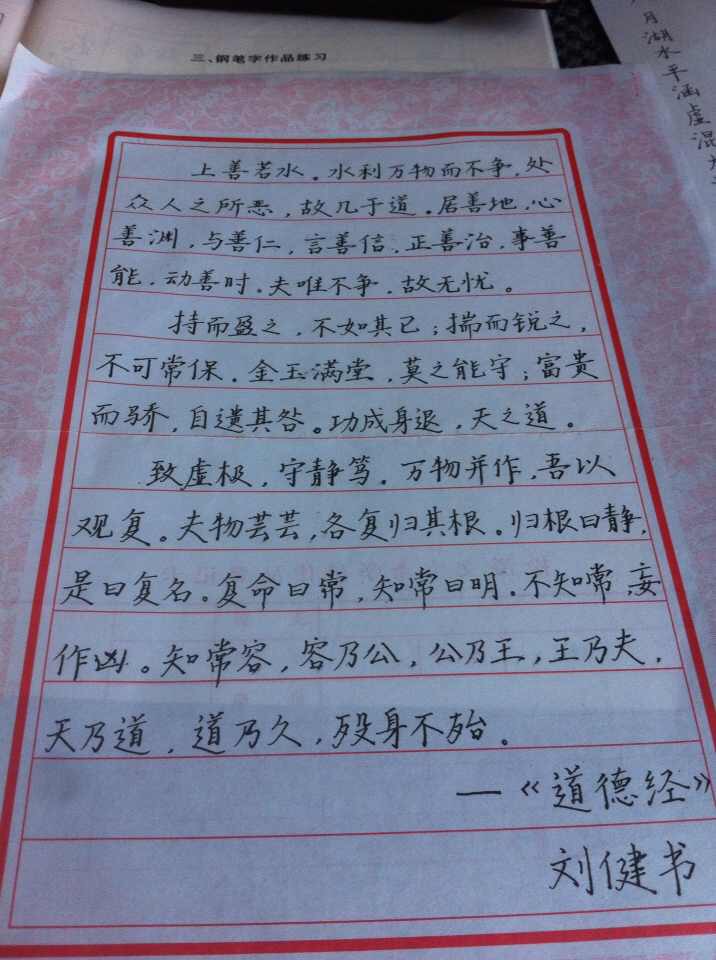 三、钢笔字作品练习
月湖水平涵虚混
上善若水。水利万物而不争,处
众人之所恶,故几于道。居善地,心
善渊,与善仁,言善信,正善治,事善
能,动善时,夫唯不争,故无忧。
持而盈之,不如其已;揣而锐之,
不可常保。金玉满堂,莫之能守;富贵
而骄,自遗其咎。功成身退,天之道。
致虚极,守静笃。万物并作,吾以
观复。夫物芸芸,各复归其根。归根曰静,
是曰复名。复命曰常,知常曰明。不知常,妄
作凶。知常容,容乃公,公乃王,王乃夫,
天乃道,道乃久,殁身不殆。
—《道德经》
刘健书